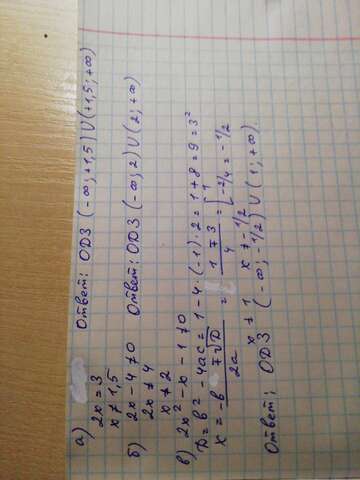 а)
2x = 3
x ≠ 1,5
Ответ: ОДЗ (-∞; +1,5) ∪ (+1,5; +∞)
б) 2x - 4 ≠ 0
2x ≠ 4
x ≠ 2
Ответ: ОДЗ (-∞; 2) ∪ (2; +∞)
в) 2x² - x - 1 ≠ 0
D = b² - 4ac = 1 - 4 · (-1) · 2 = 1 + 8 = 9 = 3²
x = (-b ∓ √D) / 2a = (1 ∓ 3) / 4 = [ 1 ; -2/4 = -1/2
x ≠ 1 x ≠ -1/2
Ответ: ОДЗ (-∞; -1/2) ∪ (1; +∞).